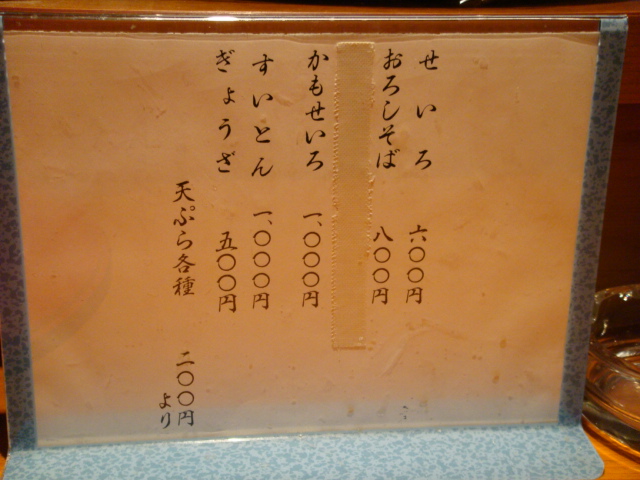 せいろ 六〇〇円
おろしそば 八〇〇円
かもせいろ 一、〇〇〇円
すいとん 一、〇〇〇円
ぎょうざ 五〇〇円
天ぷら各種 二〇〇円
より